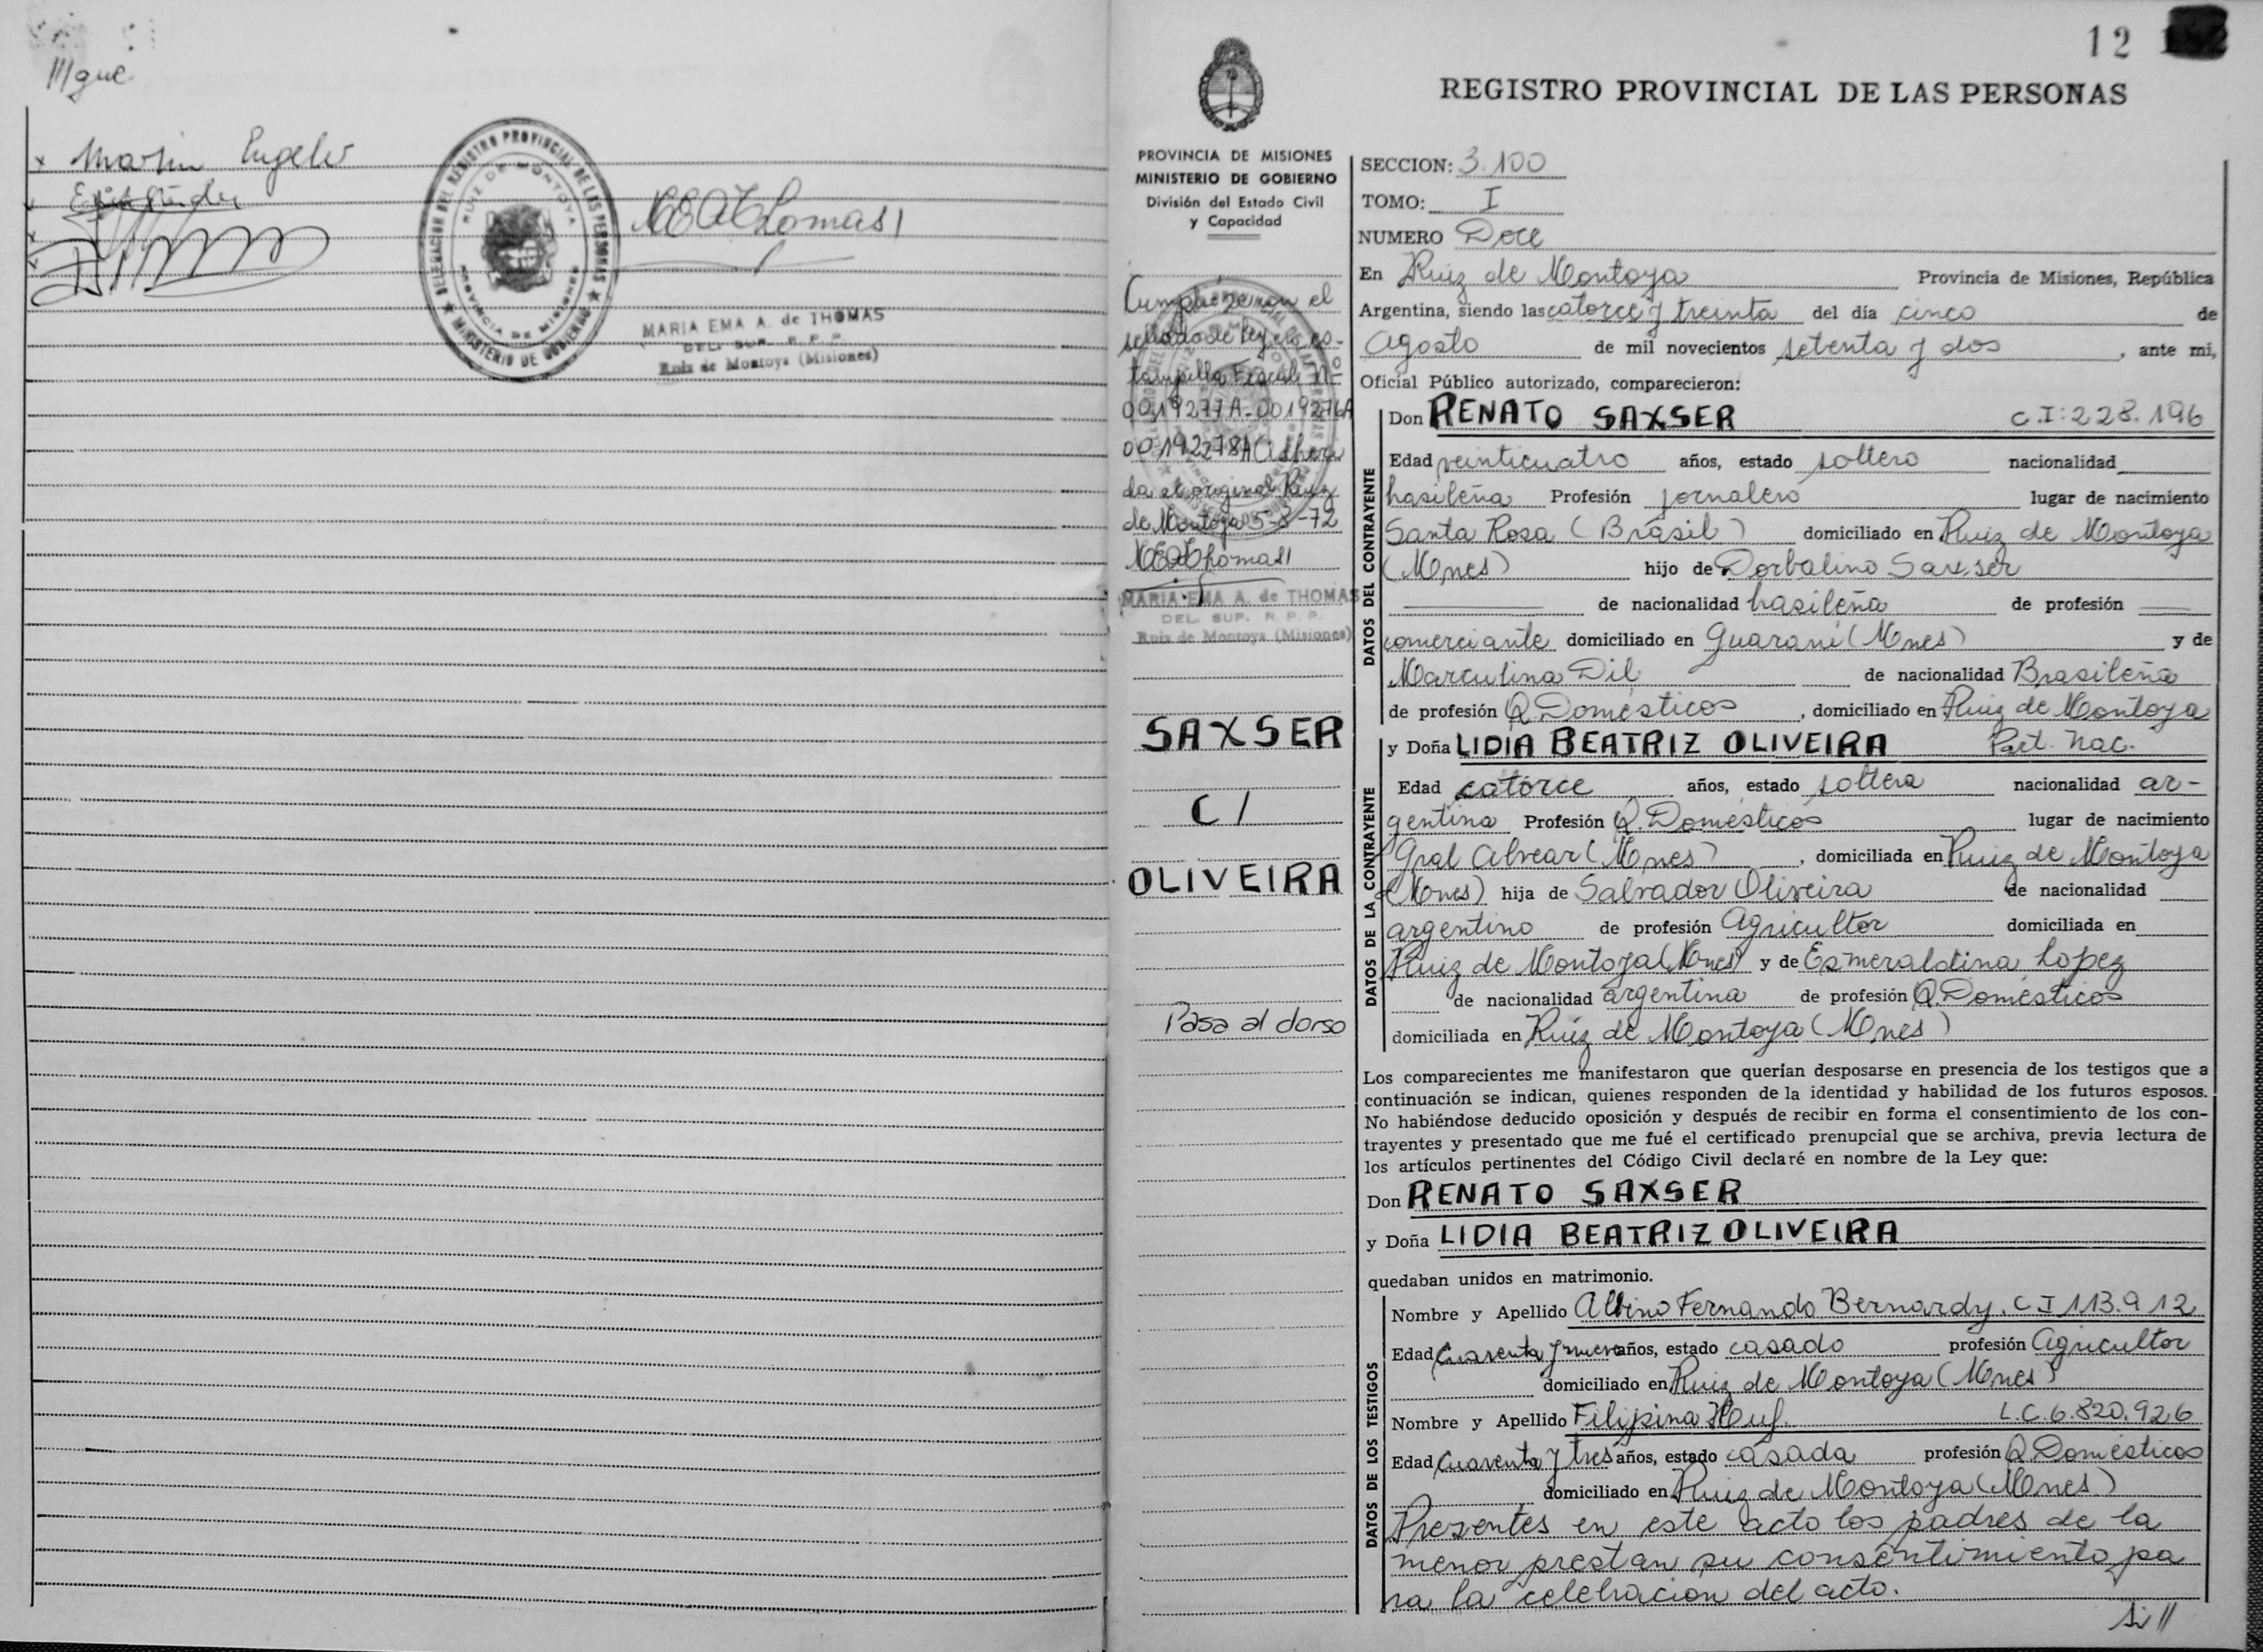 ///gue
x Martin Engeler
DELEGACION DEL REGISTRO PROVINCIAL DE LAS PERSONAS
RUIZ DE MONTOYA
PROVINCIA DE MISIONES
★ MINISTERIO DE GOBIERNO ★
MEAThomas
MARIA EMA A. de THOMAS
DEL. SUP. R. P. P.
Ruiz de Montoya (Misiones)
12
REGISTRO PROVINCIAL DE LAS PERSONAS
PROVINCIA DE MISIONES
MINISTERIO DE GOBIERNO
División del Estado Civil
y Capacidad
el
sellado de Ley en es-
tampilla Fiscal No
0019277A-0019276A
00192278A Adheri
da al original Ruiz
de Montoya 5-8-72
MEAThomas
MARIA EMA A. de THOMAS
DEL. SUP. R. P. P.
Ruiz de Montoya (Misiones)
SAXSER
C/
OLIVEIRA
Pasa al dorso
SECCION: 3.100
TOMO: I
NUMERO Doce
En Ruiz de Montoya Provincia de Misiones, República
Argentina, siendo las catorce y treinta del día cinco de
Agosto de mil novecientos setenta y dos, ante mi,
Oficial Público autorizado, comparecieron:
DATOS DEL CONTRAYENTE
Don RENATO SAXSER C.I: 228.196
Edad veinticuatro años, estado soltero nacionalidad
brasileña Profesión jornalero lugar de nacimiento
Santa Rosa (Brasil) domiciliado en Ruiz de Montoya
(Mnes) hijo de Dorbalino Saxser
de nacionalidad brasileña de profesión
comerciante domiciliado en Guaraní (Mnes) y de
Marculina Dil de nacionalidad Brasileña
de profesión Q. Domésticos, domiciliado en Ruiz de Montoya
DATOS DE LA CONTRAYENTE
y Doña LIDIA BEATRIZ OLIVEIRA Part. Nac.
Edad catorce años, estado soltera nacionalidad ar-
gentina Profesión Q. Domésticos lugar de nacimiento
Gral Alvear (Mnes), domiciliada en Ruiz de Montoya
(Mnes) hija de Salvador Oliveira de nacionalidad
argentino de profesión Agricultor domiciliada en
Ruiz de Montoya (Mnes) y de Esmeraldina Lopez
de nacionalidad argentina de profesión Q. Domésticos
domiciliada en Ruiz de Montoya (Mnes)
Los comparecientes me manifestaron que querían desposarse en presencia de los testigos que a
continuación se indican, quienes responden de la identidad y habilidad de los futuros esposos.
No habiéndose deducido oposición y después de recibir en forma el consentimiento de los con-
trayentes y presentado que me fué el certificado prenupcial que se archiva, previa lectura de
los artículos pertinentes del Código Civil declaré en nombre de la Ley que:
Don RENATO SAXSER
y Doña LIDIA BEATRIZ OLIVEIRA
quedaban unidos en matrimonio.
DATOS DE LOS TESTIGOS
Nombre y Apellido Albino Fernando Bernardy. C I 113.912
Edad Cuarenta y nueve años, estado casado profesión Agricultor
domiciliado en Ruiz de Montoya (Mnes)
Nombre y Apellido Filipina Huf. L.C. 6.820.926
Edad Cuarenta y tres años, estado casada profesión Q. Domésticos
domiciliado en Ruiz de Montoya (Mnes)
Presentes en este acto los padres de la
menor prestan su consentimiento pa
ra la celebracion del acto.
Si //